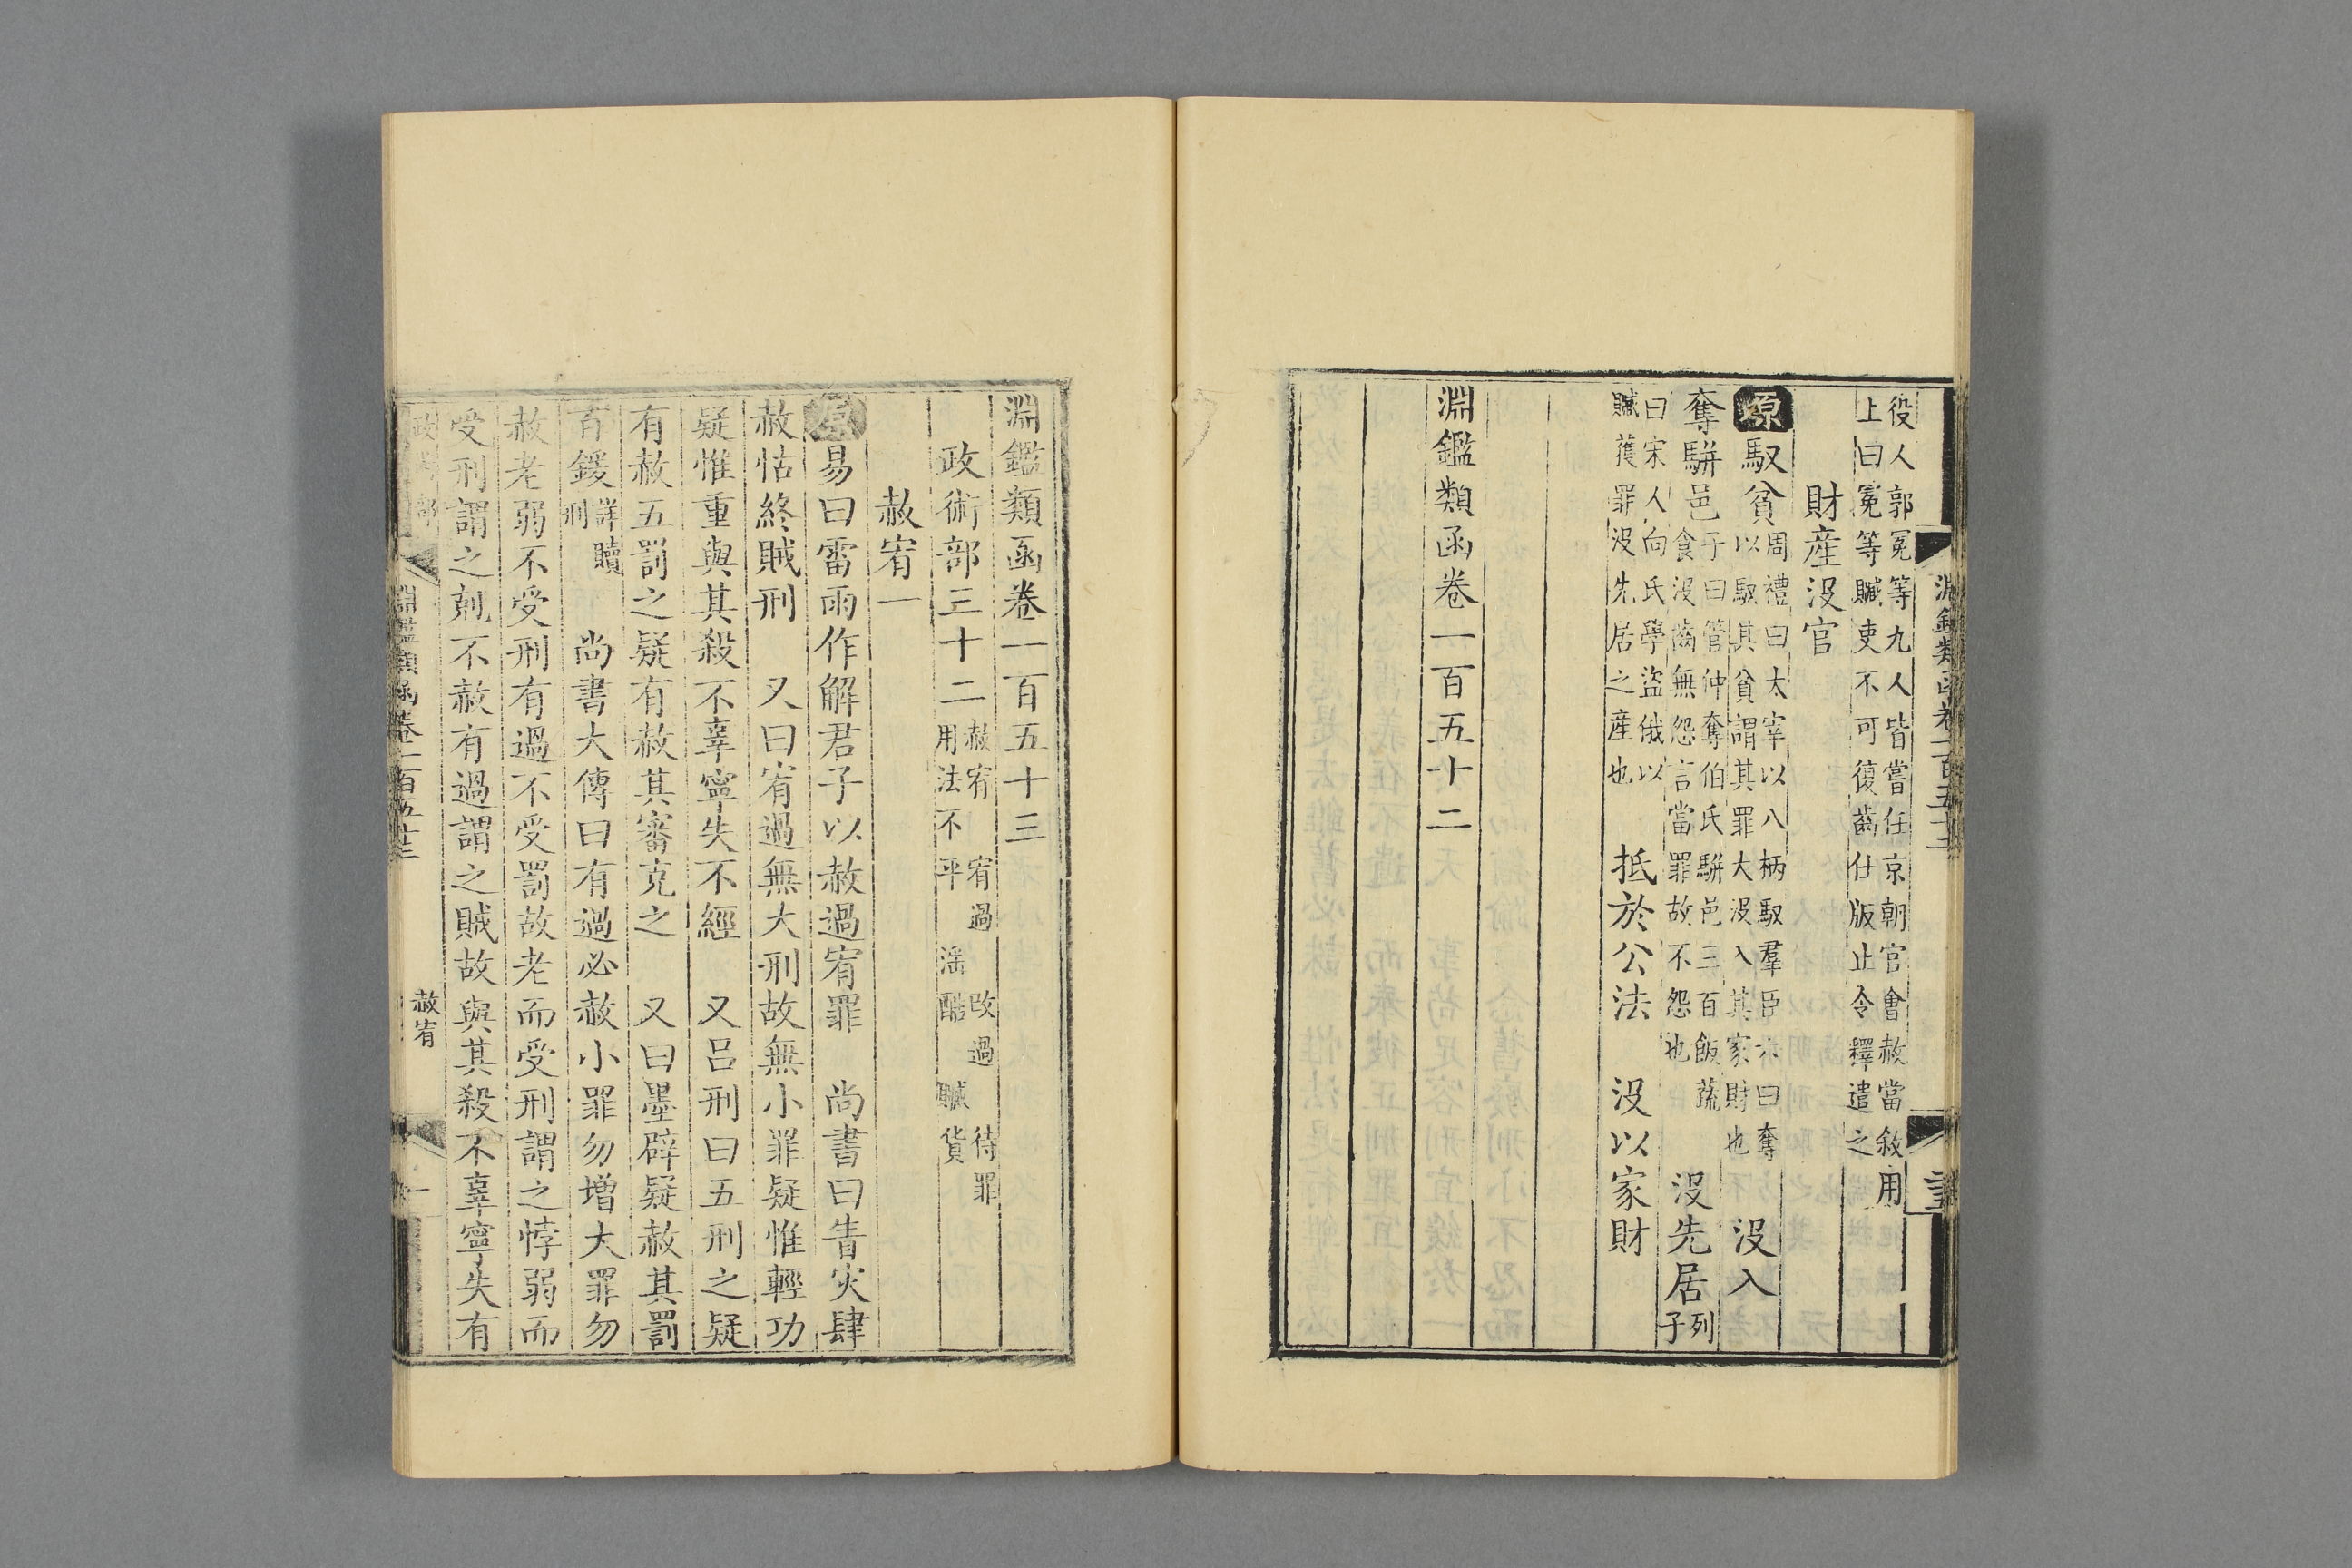 役人郭冕等九人皆嘗任京朝官會赦當敘用
上曰冕等贓吏不可復齒仕版止令釋遣之
財産没官
原馭貧周禮曰太宰以八柄馭羣臣六曰奪
以馭其貧謂其罪大没入其家財也 没入
奪駢邑子曰管仲奪伯氏駢邑三百飯蔬
食没齒無怨言當罪故不怨也 没先居列
子
曰宋人向氏學盜俄以
贓獲罪没先居之産也 抵於公法 没以家財
淵鑑類函卷一百五十二
淵鑑類函卷一百五十三
政術部三十二赦宥 宥過 改過 待罪
用法不平 滛酷 贓貨
赦宥一
原易曰雷雨作解君子以赦過宥罪 尚書曰眚灾肆
赦怙終賊刑 又曰宥過無大刑故無小罪疑惟輕功
疑惟重與其殺不辜寧失不經 又吕刑曰五刑之疑
有赦五罰之疑有赦其審克之 又曰墨辟疑赦其罰
百鍰詳贖
刑 尚書大傳曰有過必赦小罪勿增大罪勿
赦老弱不受刑有過不受罰故老而受刑謂之悖弱而
受刑謂之剋不赦有過謂之賊故與其殺不辜寧失有
淵鑑類函卷一百五十三
赦宥
一